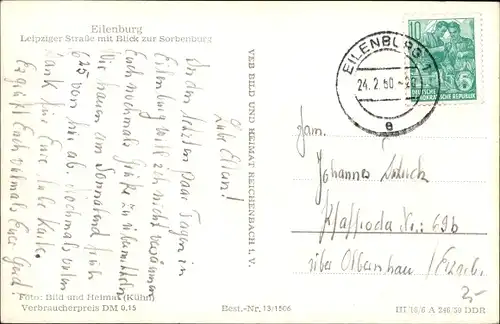 Eilenburg
Leipziger Straße mit Blick zur Sorbenburg
Liebe Eltern!
In den letzten paar Tagen in
Eilenburg will ich nicht versäumen
Euch nochmals Grüße zu übermitteln
Wir fahren am Sonnabend früh
6.25 von hier ab. Nochmals vielen
Dank für Eure liebe Karte.
Es grüßt Euch vielmals Euer Gerd!
Foto: Bild und Heimat (Kühn)
Verbraucherpreis DM 0,15
VEB BILD UND HEIMAT REICHENBACH i. V.
Best.-Nr. 13/1506
EILENBURG 1
24.2.60
e
10
5
DEUTSCHE
DEMOKRATISCHE REPUBLIK
Fam.
Johannes
Pfaffroda Nr.: 69b
über Olbernhau /Erzgeb.
25-
III/18/6 A 246/59 DDR